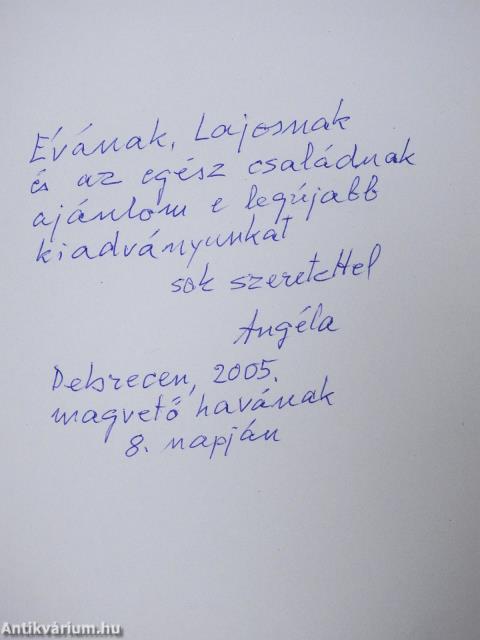 Évának, Lajosnak
és az egész családnak
ajánlom e legújabb
kiadványunkat
sok szeretettel
Angéla
Debrecen, 2005.
magvető havának
8. napján
Antikvárium.hu